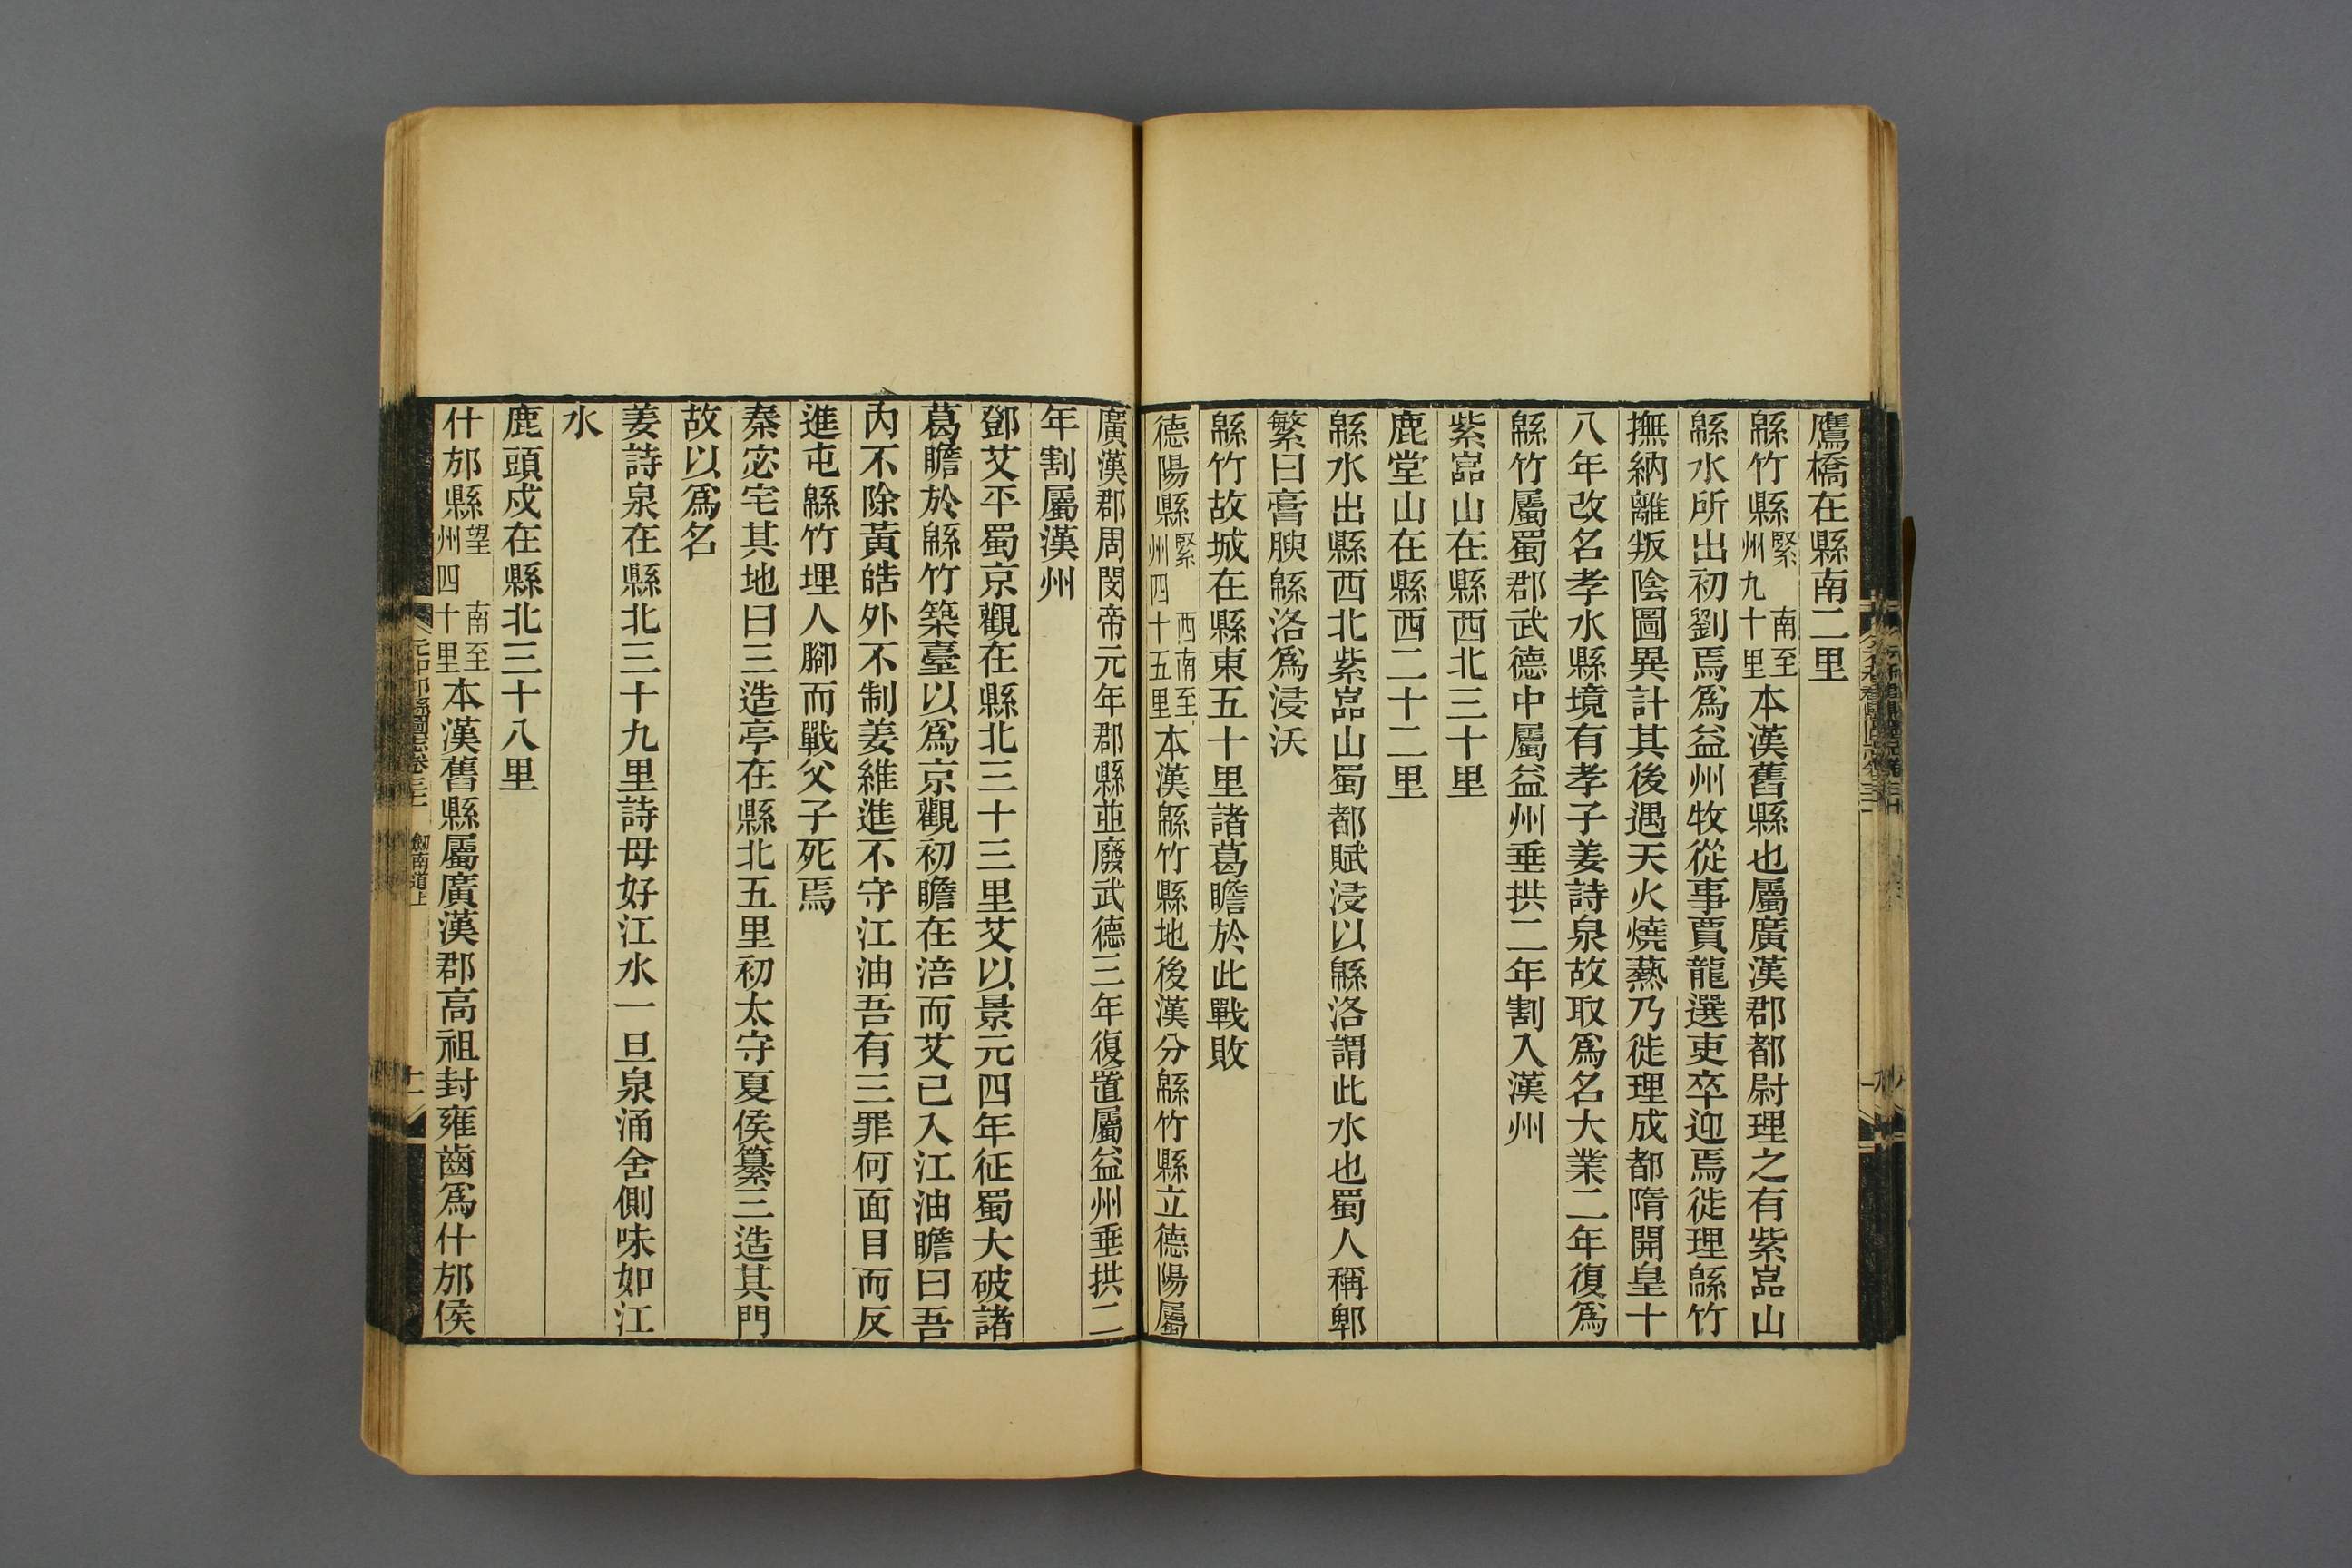 鷹橋在縣南二里
緜竹縣緊 南至州九十里本漢舊縣也屬廣漢郡都尉理之有紫嵓山
緜水所出初劉焉爲益州牧從事賈龍選吏卒迎焉徙理緜竹
撫納離叛陰圖異計其後遇天火燒爇乃徙理成都隋開皇十
八年改名孝水縣境有孝子姜詩泉故取爲名大業二年復爲
緜竹屬蜀郡武德中屬益州垂拱二年割入漢州
紫嵓山在縣西北三十里
鹿堂山在縣西二十二里
緜水出縣西北紫嵓山蜀都賦浸以緜洛謂此水也蜀人稱郫
繁曰膏腴緜洛爲浸沃
緜竹故城在縣東五十里諸葛瞻於此戰敗
德陽縣緊 西南至州四十五里本漢緜竹縣地後漢分緜竹縣立德陽屬
廣漢郡周閔帝元年郡縣並廢武德三年復置屬益州垂拱二
年割屬漢州
鄧艾平蜀京觀在縣北三十三里艾以景元四年征蜀大破諸
葛瞻於緜竹築臺以爲京觀初瞻在涪而艾已入江油瞻曰吾
內不除黃皓外不制姜維進不守江油吾有三罪何面目而反
進屯緜竹埋人腳而戰父子死焉
秦宓宅其地曰三造亭在縣北五里初太守夏侯纂三造其門
故以爲名
姜詩泉在縣北三十九里詩母好江水一旦泉涌舍側味如江
水
鹿頭戍在縣北三十八里
什邡縣望 南至州四十里本漢舊縣屬廣漢郡高祖封雍齒爲什邡侯